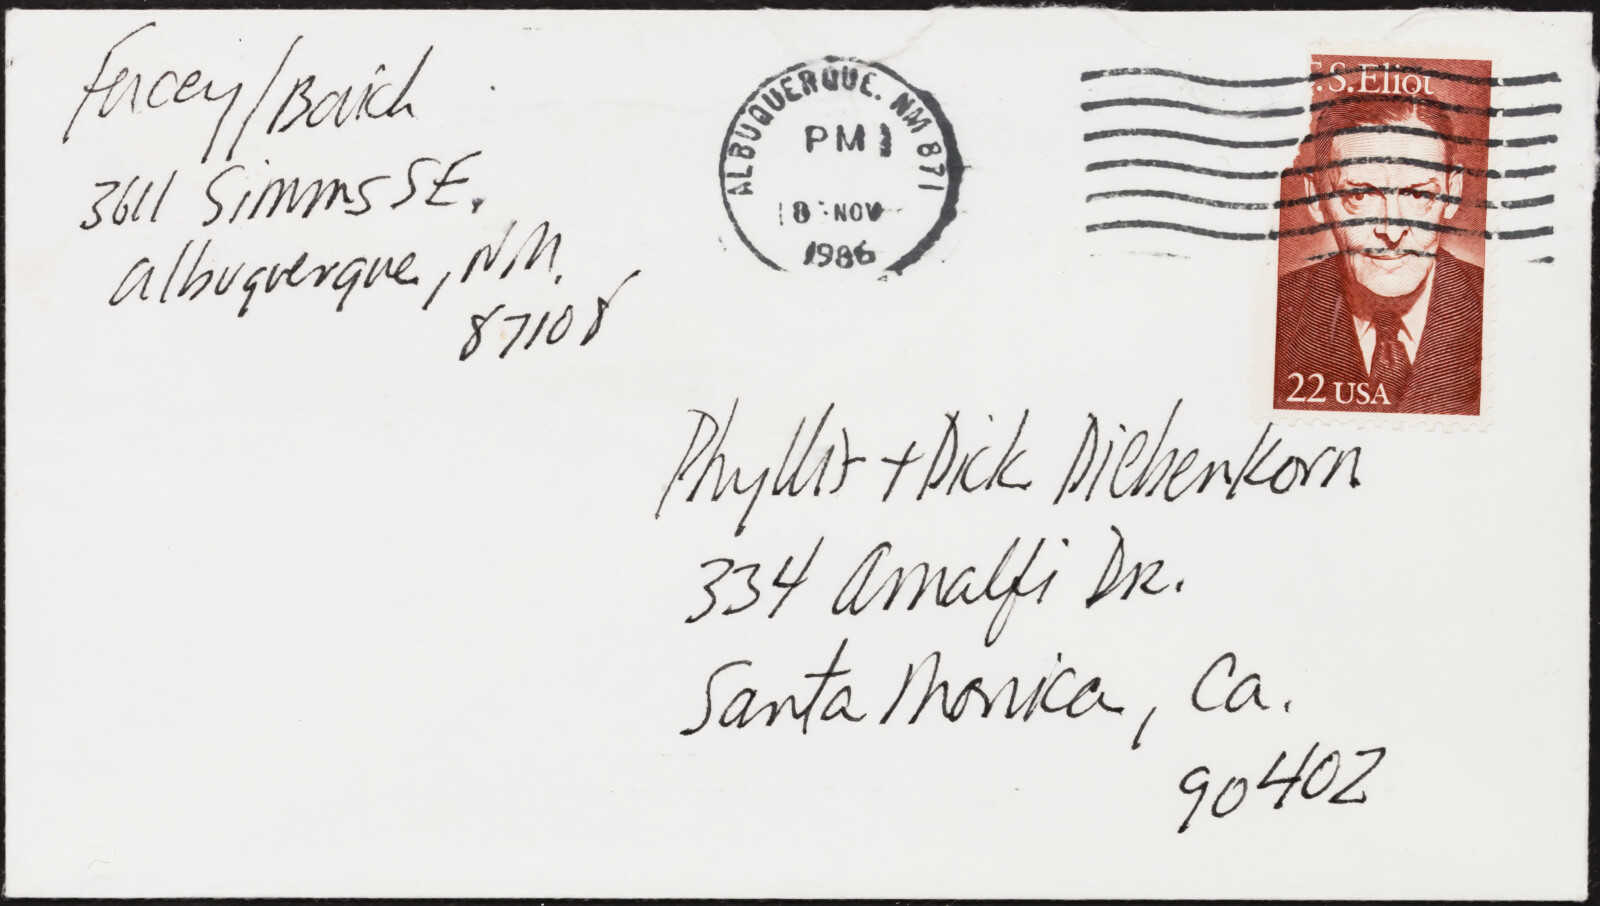 Furcey/Bovich
3611 Simms SE.
Albuquerque, NM.
87108
ALBUQUERQUE. NM 871
PM
18 NOV
1986
.S. Eliot
22 USA
Phyllis + Dick Diebenkorn
334 Amalfi Dr.
Santa Monica, Ca.
90402